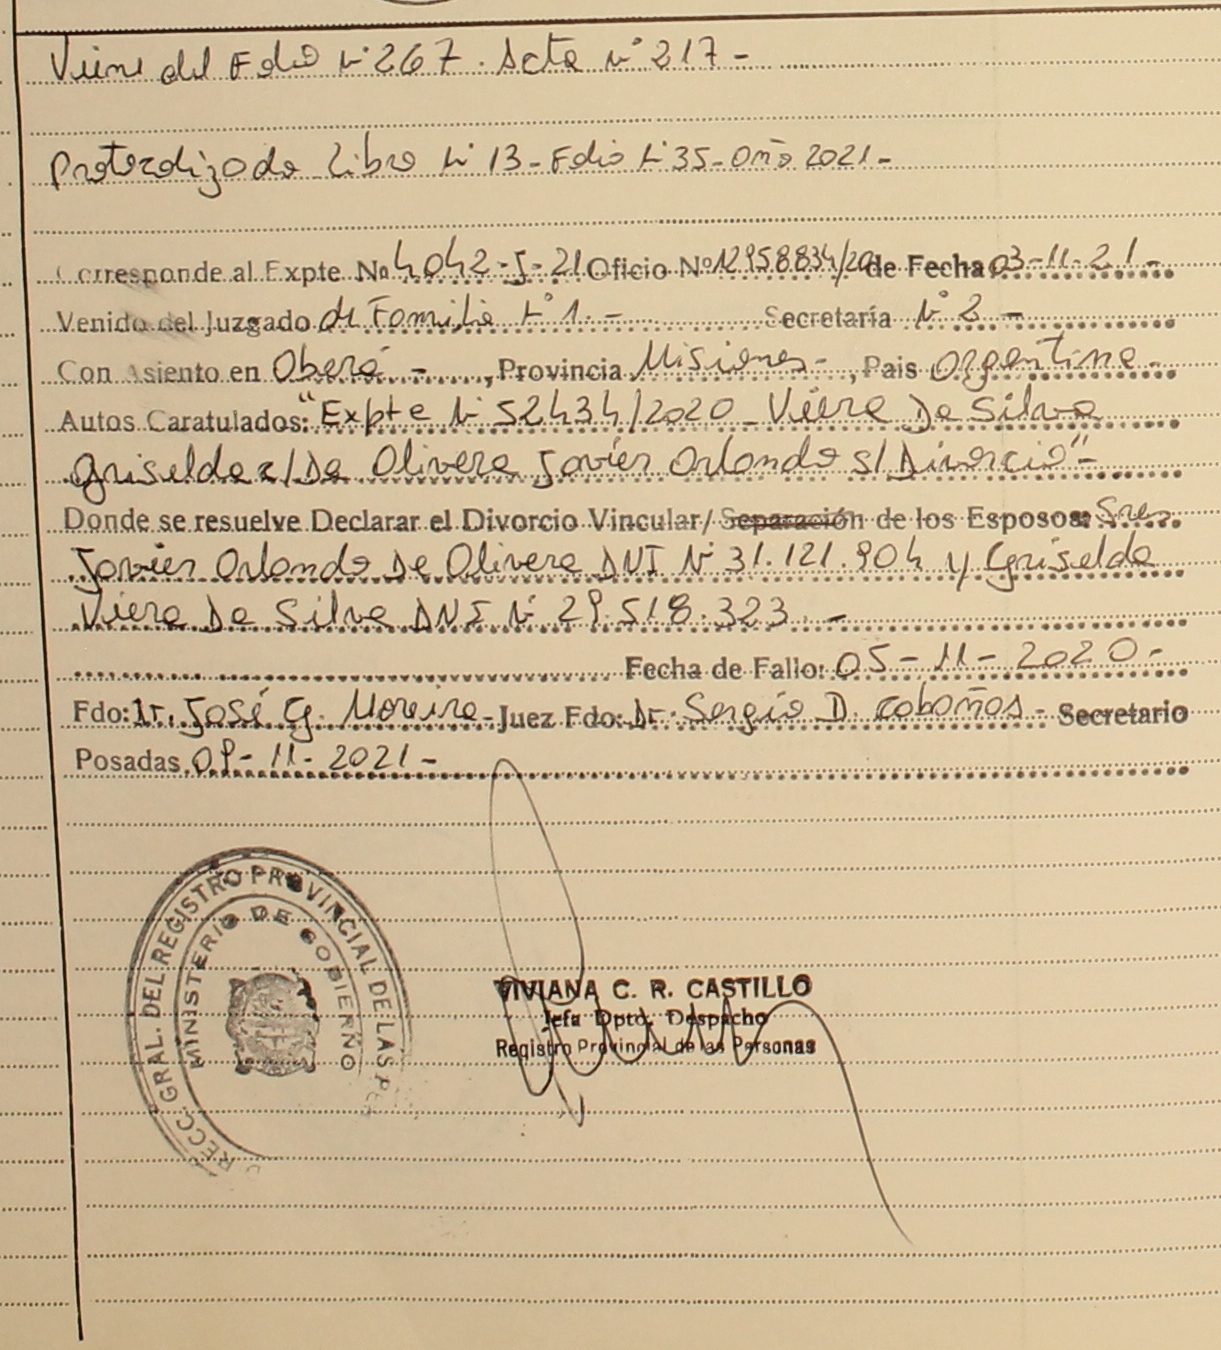 Viene del Folio N° 267. Acta N° 217 -
Protocolizado Libro N° 13 - Folio N° 35 - Año 2021 -
Corresponde al Expte Nº 4042-J-21 Oficio Nº 12958834/20 de Fecha 03-11-21 -
Venido del Juzgado de Familia N° 1. - Secretaría N° 2 -
Con Asiento en Oberá - , Provincia Misiones - , Pais Argentina -
Autos Caratulados: "Expte N° 52434/2020 - Viera Da Silva
Griselda c/ De Olivera Javier Orlando s/ Divorcio" -
Donde se resuelve Declarar el Divorcio Vincular/ Separación de los Esposos: Sres
Javier Orlando De Olivera DNI N° 31.121.904 y Griselda
Viera Da Silva DNI N° 29.518.323. -
Fecha de Fallo: 05-11-2020 -
Fdo: Dr. José G. Moreira - Juez Fdo: Dr. Sergio D. Cabañas - Secretario
Posadas 09-11-2021 -
RECC. GRAL. DEL REGISTRO PROVINCIAL DE LAS
MINISTERIO DE GOBIERNO
VIVIANA C. R. CASTILLO
Jefa Dpto. Despacho
Registro Provincial de las Personas